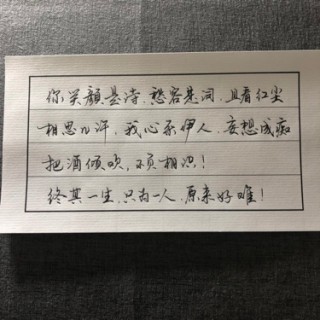 你笑颜是诗，愁容是词，且看红尘
相思几许，我心系伊人，妄想成痴
把酒倾吹，不负相识！
终其一生，只为一人，原来好难！